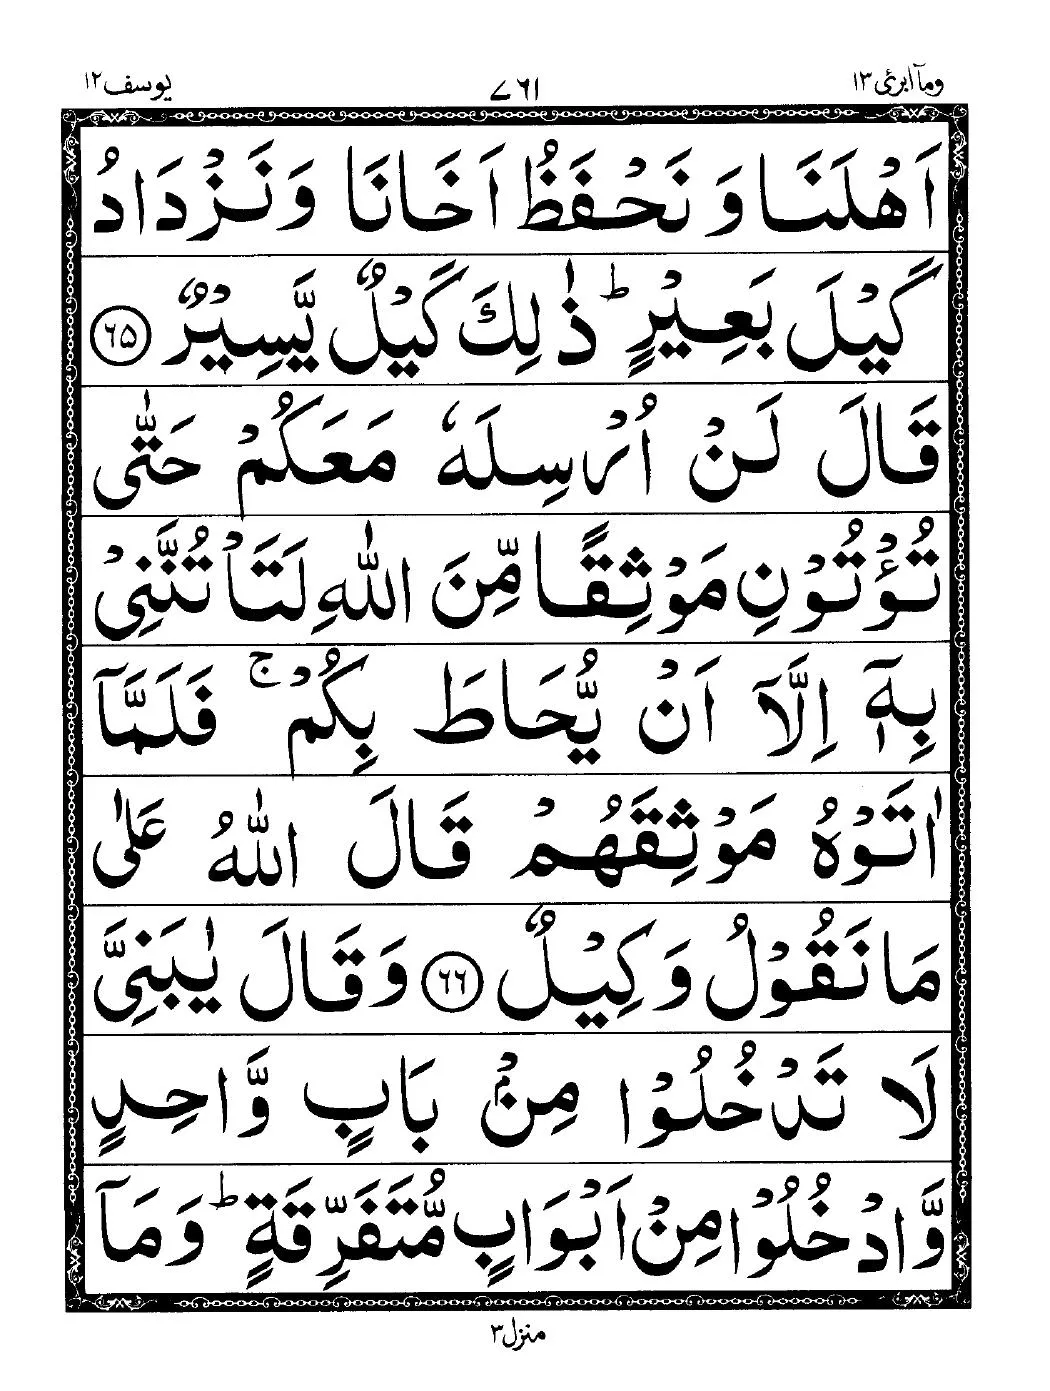 وماۤ ابرئ ۱۳
۷۶۱
یوسف ۱۲
اَهْلَنَا وَ نَحْفَظُ اَخَانَا وَ نَزْدَادُ
كَیْلَ بَعِیْرٍ ؕ ذٰلِكَ كَیْلٌ یَّسِیْرٌ ۶۵
قَالَ لَنْ اُرْسِلَهٗ مَعَكُمْ حَتّٰى
تُؤْتُوْنِ مَوْثِقًا مِّنَ اللّٰهِ لَتَاْتُنَّنِیْ
بِهٖۤ اِلَّاۤ اَنْ یُّحَاطَ بِكُمْ ۚ فَلَمَّاۤ
اٰتَوْهُ مَوْثِقَهُمْ قَالَ اللّٰهُ عَلٰى
مَا نَقُوْلُ وَكِیْلٌ ۶۶ وَ قَالَ یٰبَنِیَّ
لَا تَدْخُلُوْا مِنْۢ بَابٍ وَّاحِدٍ
وَّ ادْخُلُوْا مِنْ اَبْوَابٍ مُّتَفَرِّقَةٍ ؕ وَ مَاۤ
منزل ۳